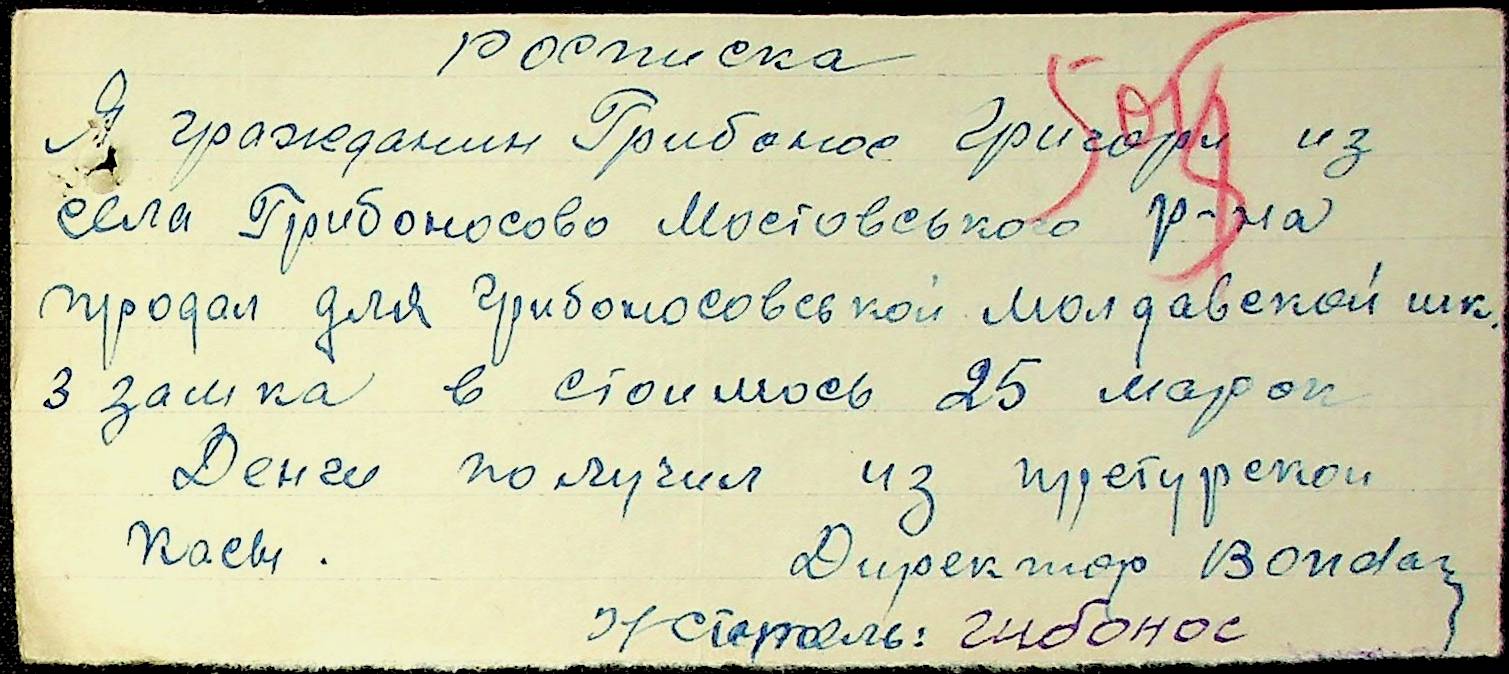 Росписка
Я гражданин Грибонос Григори из
села Грибоносово Мостовського р-на
продал для Грибоносовськой молдавской шк.
3 замка в стоимось 25 марок
Денги получил из претурской
касы.
Директор Bondar
гибонос